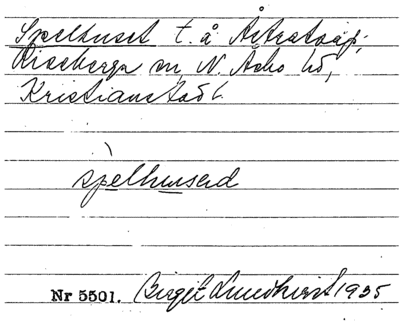 Spelhuset t. å Åstratorp,
Riseberga sn, N. Åsbo hd,
Kristianstad l.
spelhused
Nr 5501. Birgit Lundkvist 1935